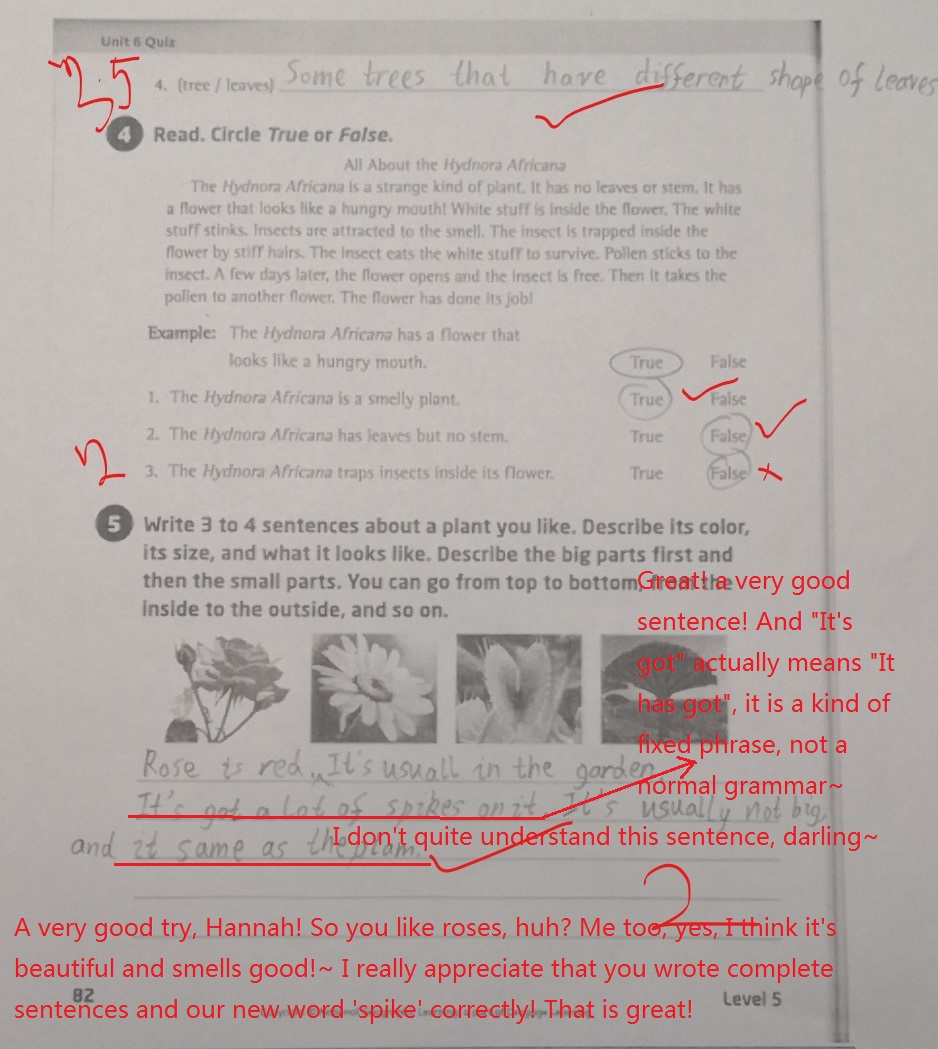 Unit 6 Quiz
3.5
4. (tree / leaves) Some trees that have different shape of leaves
4 Read. Circle True or False.
All About the Hydnora Africana
The Hydnora Africana is a strange kind of plant. It has no leaves or stem. It has
a flower that looks like a hungry mouth! White stuff is inside the flower. The white
stuff stinks. Insects are attracted to the smell. The insect is trapped inside the
flower by stiff hairs. The insect eats the white stuff to survive. Pollen sticks to the
insect. A few days later, the flower opens and the insect is free. Then it takes the
pollen to another flower. The flower has done its job!
Example: The Hydnora Africana has a flower that
looks like a hungry mouth. True False
1. The Hydnora Africana is a smelly plant. True False
2. The Hydnora Africana has leaves but no stem. True False
2
3. The Hydnora Africana traps insects inside its flower. True False
5 Write 3 to 4 sentences about a plant you like. Describe its color,
its size, and what it looks like. Describe the big parts first and
then the small parts. You can go from top to bottom, from the
inside to the outside, and so on.
Great! a very good
sentence! And "It's
got" actually means "It
has got", it is a kind of
fixed phrase, not a
normal grammar~
Rose is red, It's usuall in the garden.
It's got a lot of spikes on it. It's usually not big,
and it same as the
I don't quite understand this sentence, darling~
2
A very good try, Hannah! So you like roses, huh? Me too, yes, I think it's
beautiful and smells good!~ I really appreciate that you wrote complete
sentences and our new word 'spike' correctly! That is great!
82
Level 5